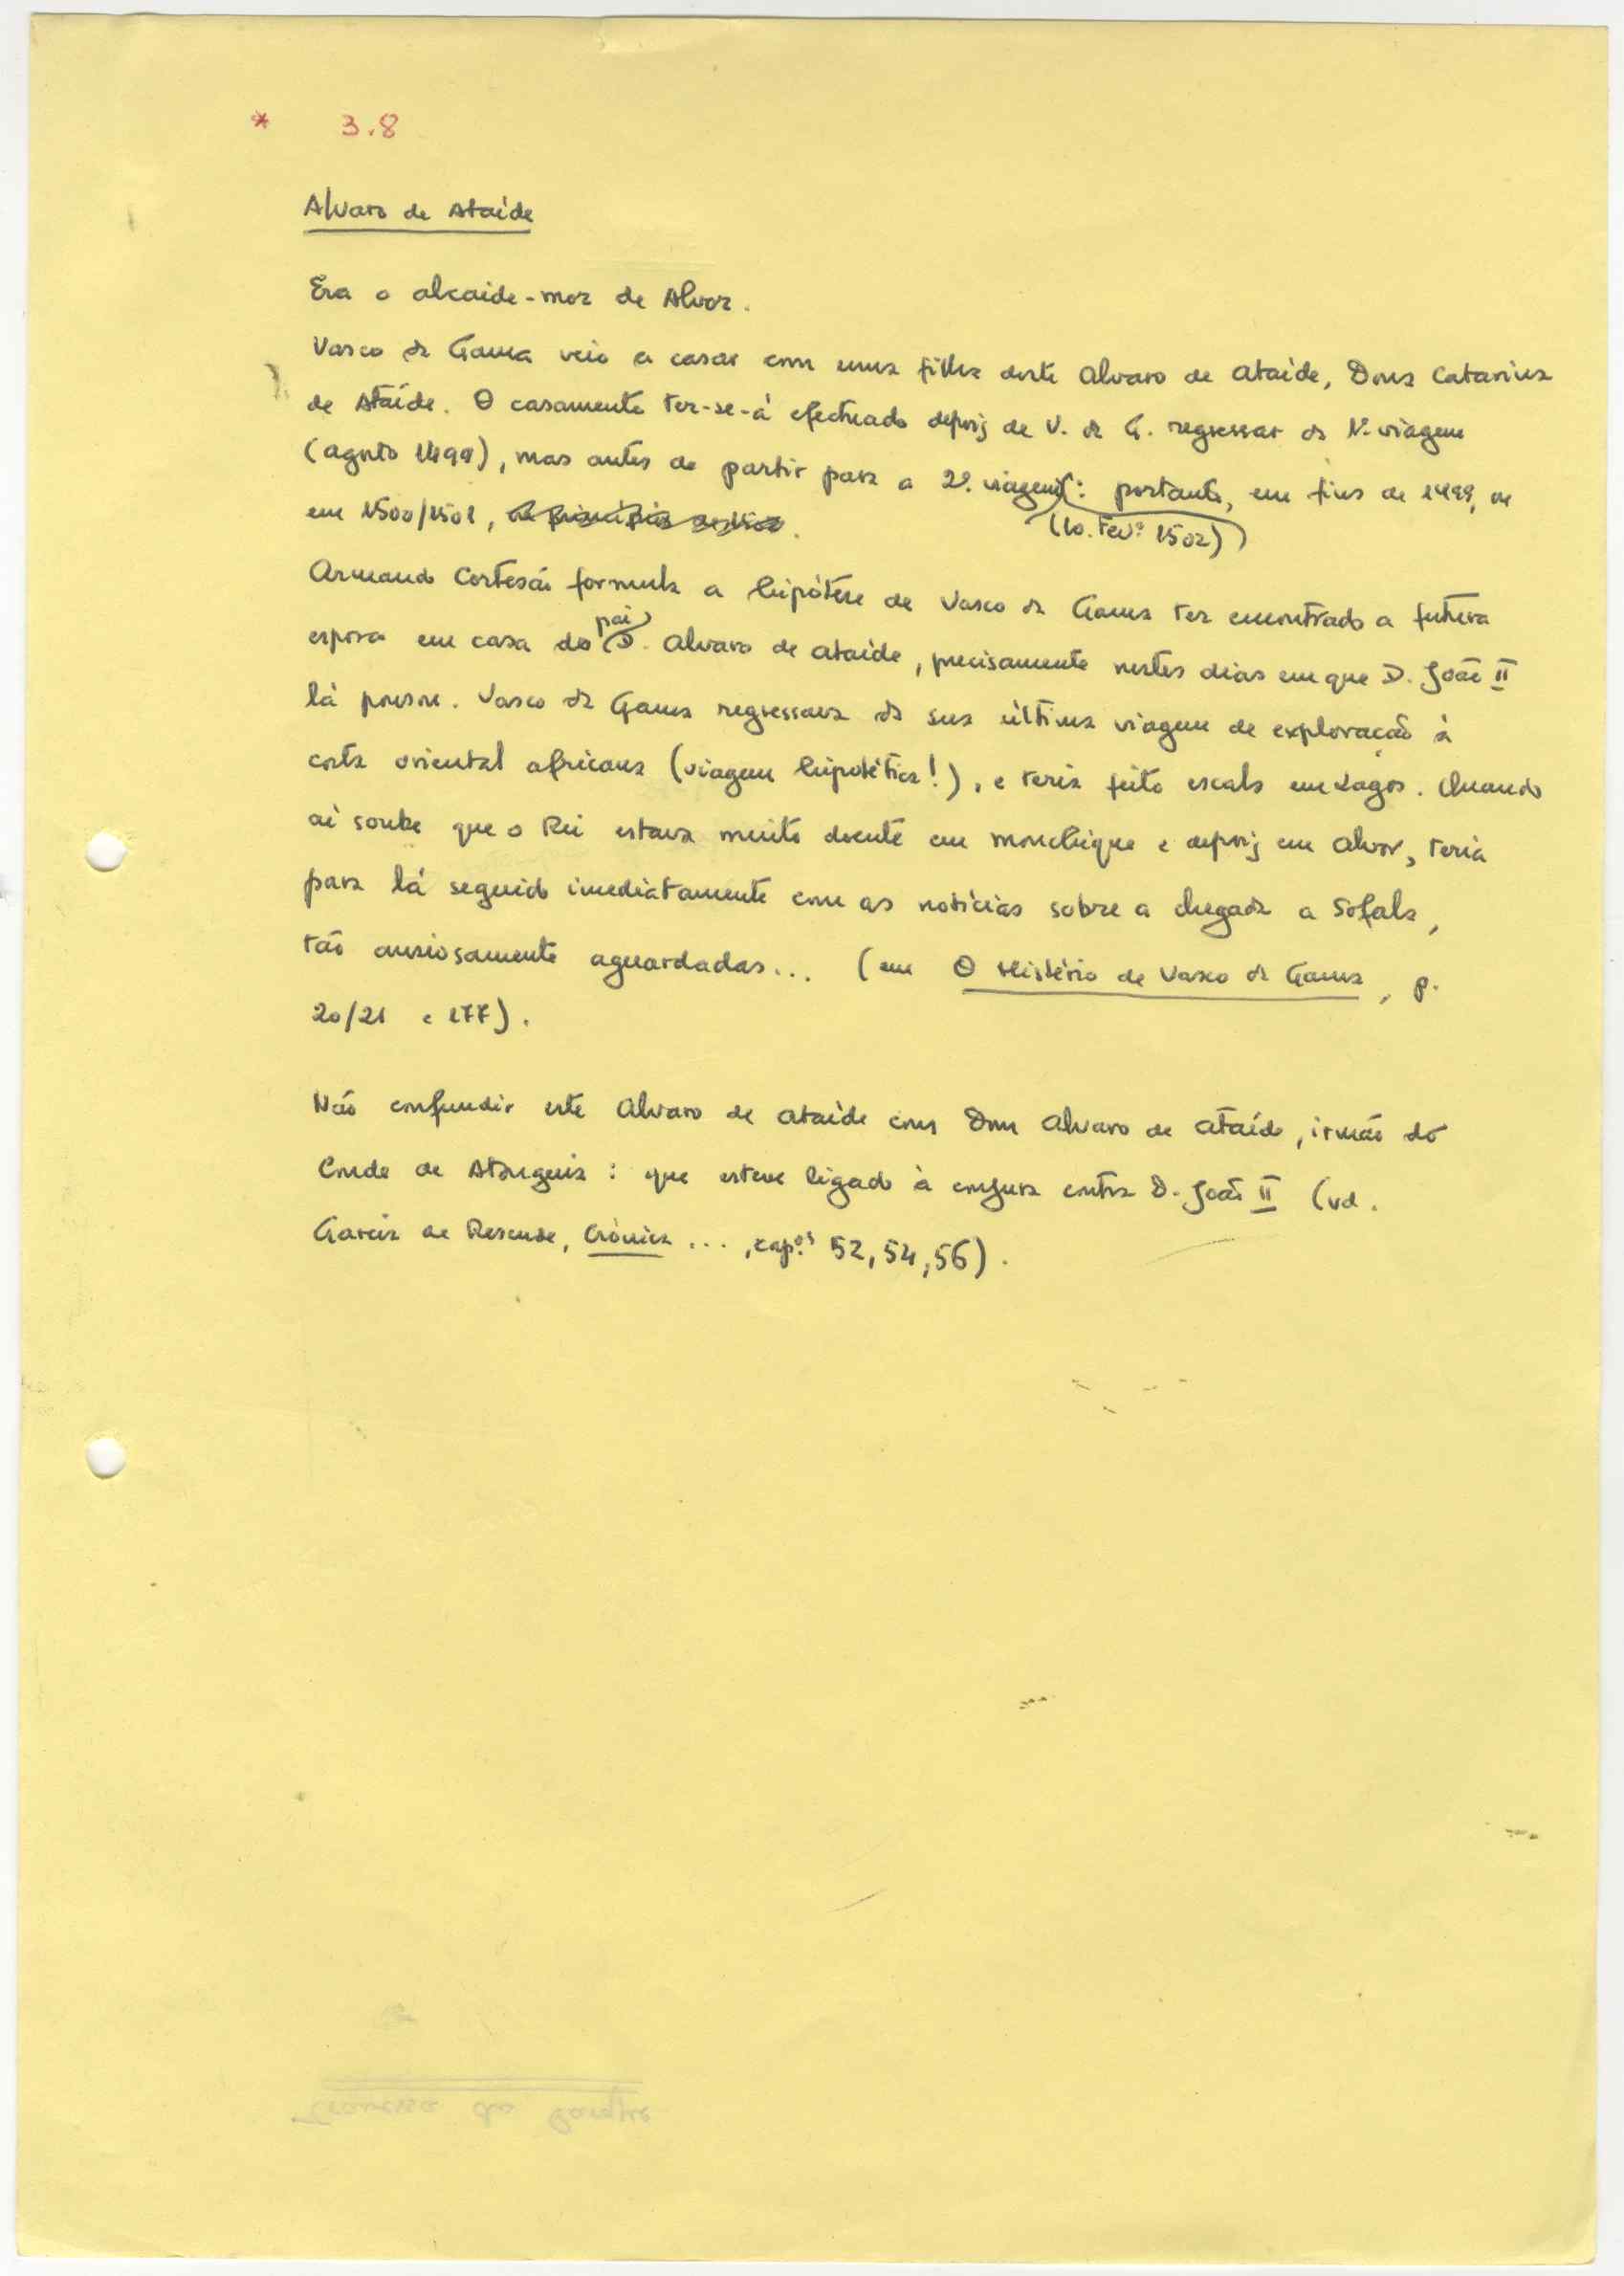 * 3.8
Alvaro de Ataíde
Era o alcaide-mor de Alvor.
Vasco da Gama veio a casar com uma filha deste Alvaro de Ataíde, Dona Catarina
de Ataíde. O casamento ter-se-á efectuado depois de V. da G. regressar da 1ª viagem
(agosto 1499), mas antes de partir para a 2ª. viagem (10. Fevº 1502): portanto, em fins de 1499, ou
em 1500/1501,
Armando Cortesão formula a hipótese de Vasco da Gama ter encontrado a futura
esposa em casa do pai D. Alvaro de Ataíde, precisamente nestes dias em que D. João II
lá pousou. Vasco da Gama regressava da sua última viagem de exploração à
costa oriental africana (viagem hipotética!), e teria feito escala em Lagos. Quando
aí soube que o Rei estava muito doente em Monchique e depois em Alvor, teria
para lá seguido imediatamente com as notícias sobre a chegada a Sofala,
tão ansiosamente aguardadas... (em O Mistério de Vasco da Gama, p.
20/21 e 177).
Não confundir este Alvaro de Ataíde com Dom Alvaro de Ataíde, irmão do
Conde de Atouguia: que esteve ligado à conjura contra D. João II (vd.
Garcia de Resende, Crónica ..., capºs 52, 54, 56).